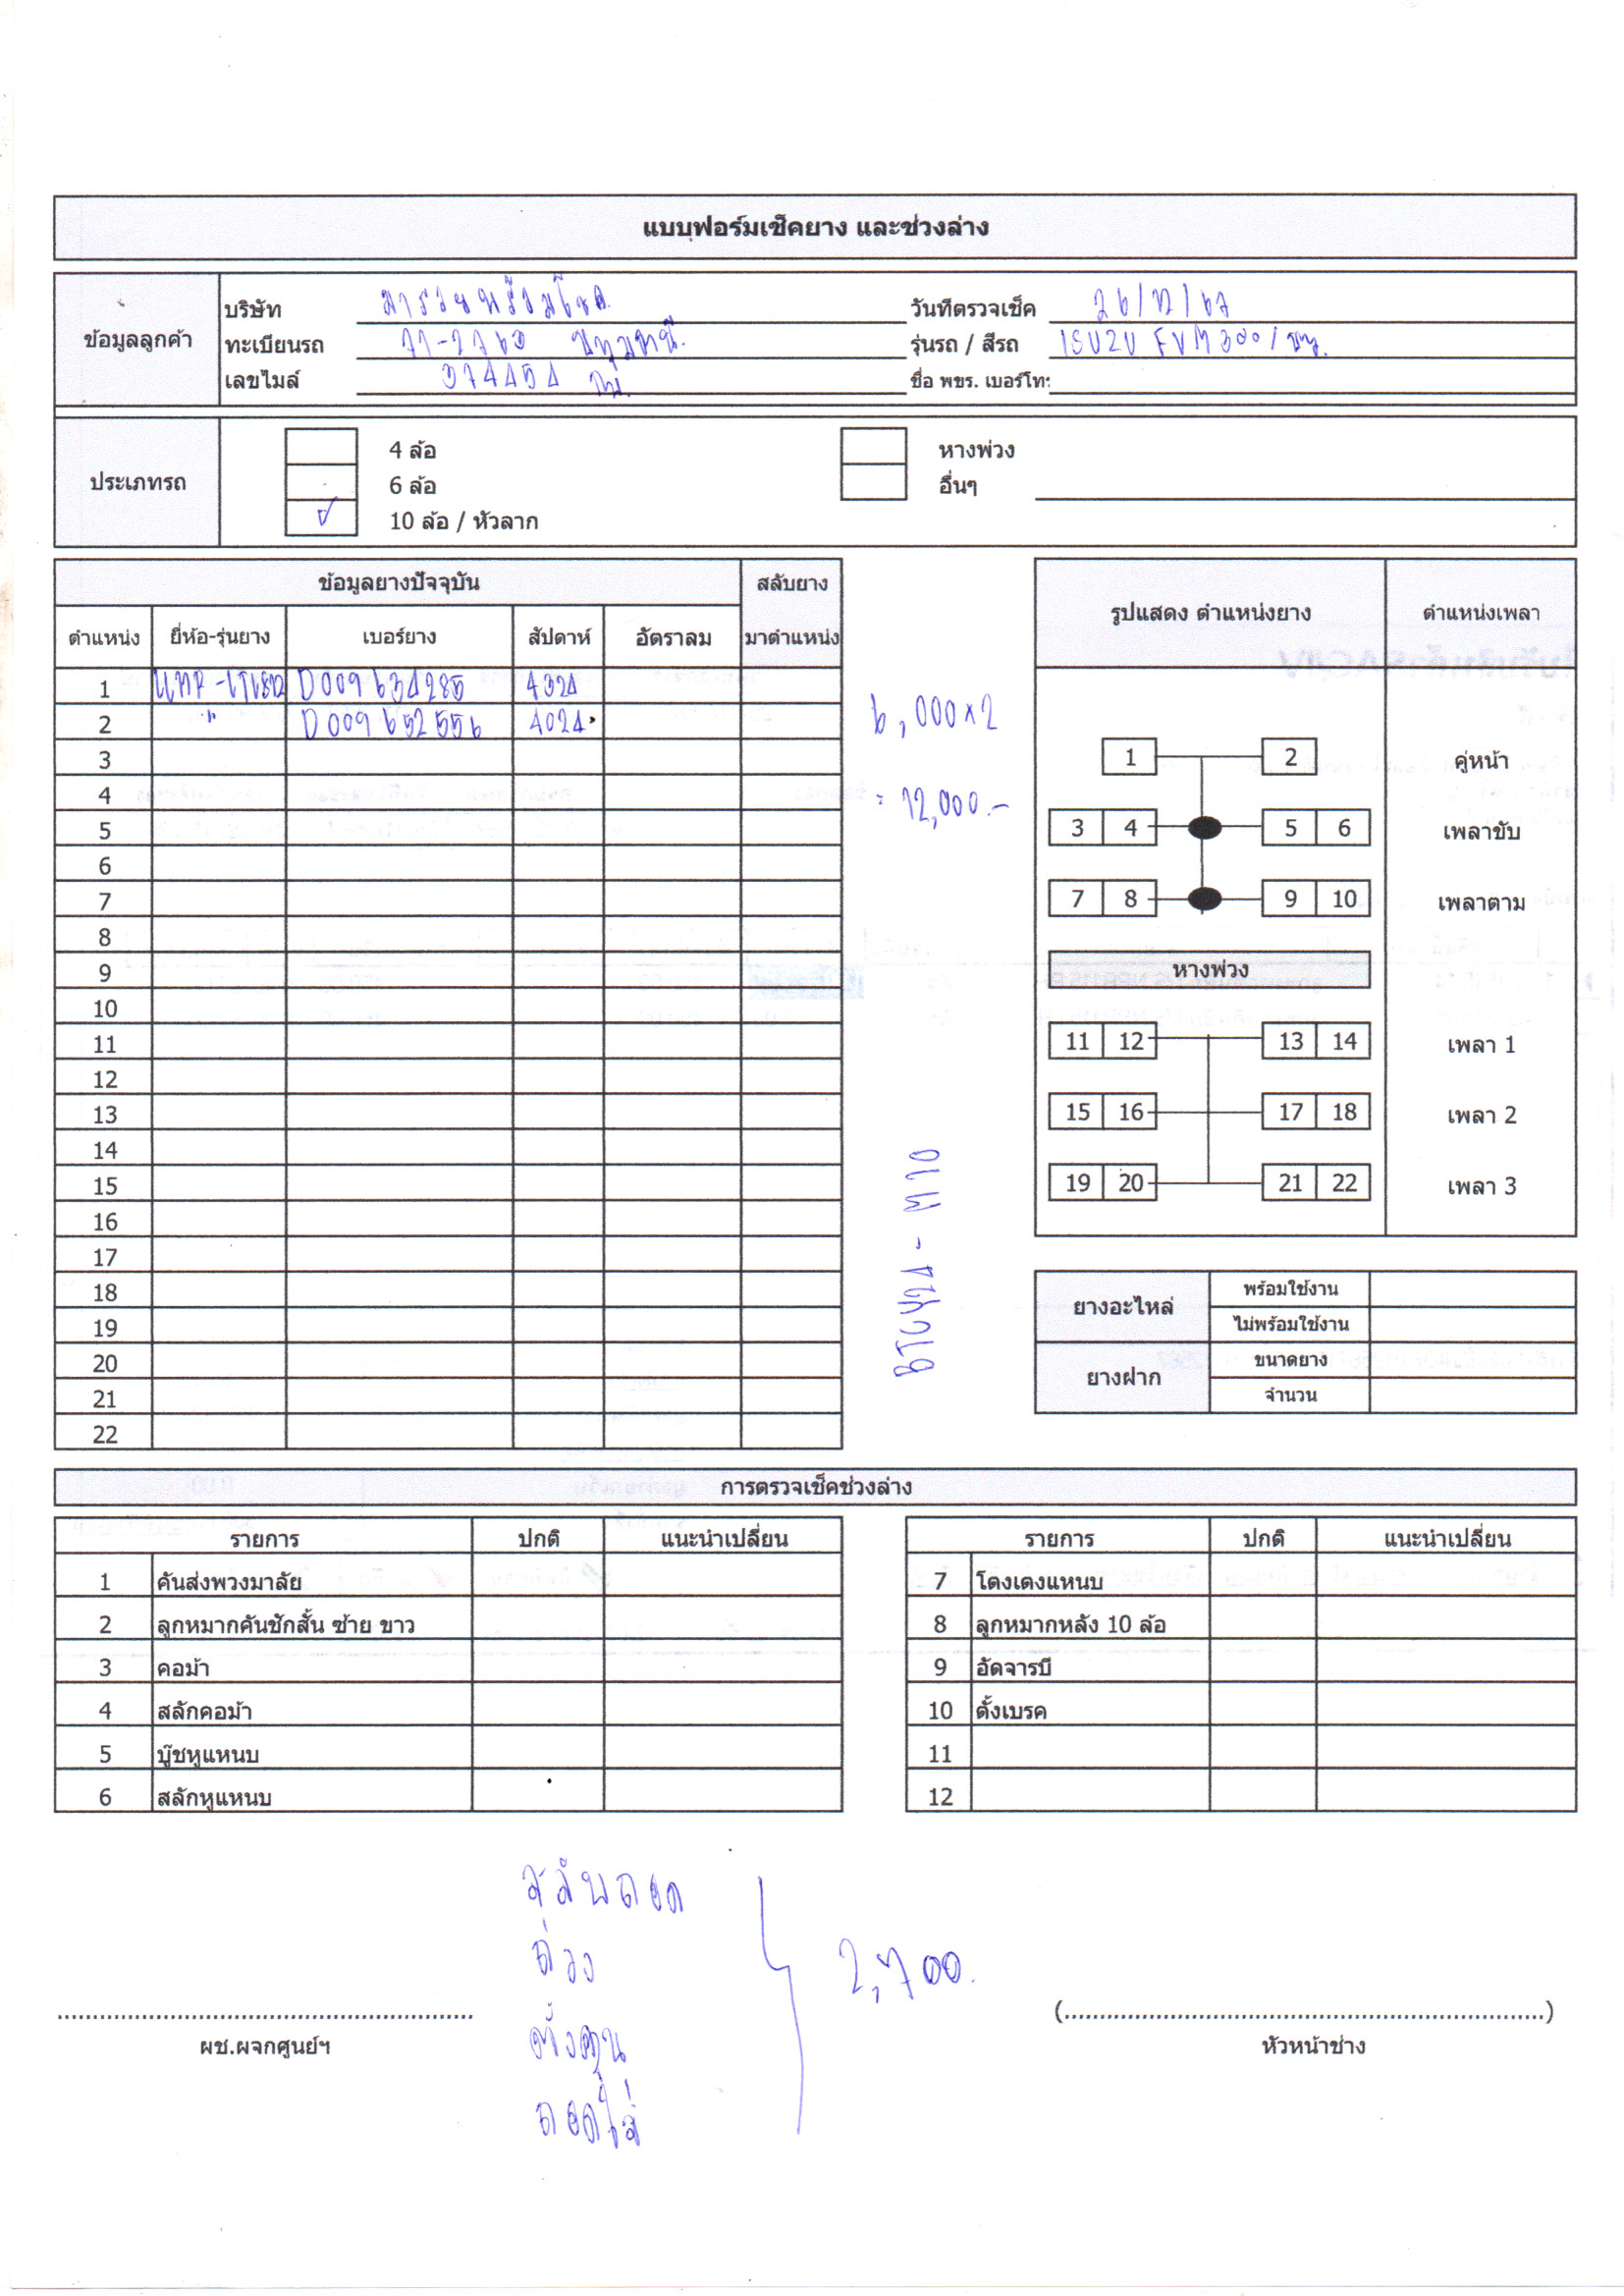 แบบฟอร์มเช็คยาง และช่วงล่าง
ข้อมูลลูกค้า
บริษัท มารวยพร้อมโชค วันที่ตรวจเช็ค 26/12/67
ทะเบียนรถ 71-2760 ปทุมธานี. รุ่นรถ / สีรถ ISUZU FVM 300 /
เลขไมล์ 374454 กม. ชื่อ พขร. เบอร์โทร
ประเภทรถ
4 ล้อ หางพ่วง
6 ล้อ อื่นๆ
✓ 10 ล้อ / หัวลาก
ข้อมูลยางปัจจุบัน สลับยาง
ตำแหน่ง ยี่ห้อ-รุ่นยาง เบอร์ยาง สัปดาห์ อัตราลม มาตำแหน่ง
1 D009634285 4324
2 " D009652556 4024
3
4
5
6
7
8
9
10
11
12
13
14
15
16
17
18
19
20
21
22
6,000x2
= 12,000.-
รูปแสดง ตำแหน่งยาง ตำแหน่งเพลา
1 2 คู่หน้า
3 4 5 6 เพลาขับ
7 8 9 10 เพลาตาม
หางพ่วง
11 12 13 14 เพลา 1
15 16 17 18 เพลา 2
19 20 21 22 เพลา 3
ยางอะไหล่ พร้อมใช้งาน
ไม่พร้อมใช้งาน
ยางฝาก ขนาดยาง
จำนวน
การตรวจเช็คช่วงล่าง
รายการ ปกติ แนะนำเปลี่ยน
1 คันส่งพวงมาลัย
2 ลูกหมากคันชักสั้น ซ้าย ขาว
3 คอม้า
4 สลักคอม้า
5 บู๊ชหูแหนบ
6 สลักหูแหนบ
รายการ ปกติ แนะนำเปลี่ยน
7 โตงเตงแหนบ
8 ลูกหมากหลัง 10 ล้อ
9 อัดจารบี
10 ตั้งเบรค
11
12
ถ่วง
ตั้งศูนย์
ถอดใส่
2,700.
ผช.ผจกศูนย์ฯ
(....................)
หัวหน้าช่าง